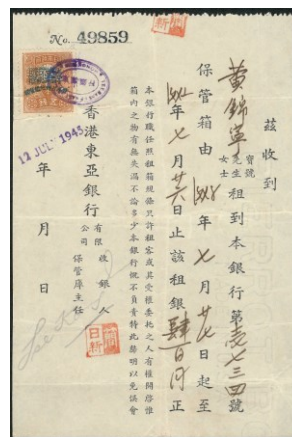 No. 49859
茲收到
黃錦 寶號 先生 女士 租到本銀行第壹七三四號
保管箱由 年七月廿七日起至
年七月廿六日止該租銀肆百円正
本銀行職任照租箱規條只許租客或其受權委托之人有權開啓惟
箱內之物有無失漏不論多少本銀行概不負責特此聲明以免誤會
香港東亞銀行有限公司 收銀人 保管庫主任
12 JUL 1943
年月日